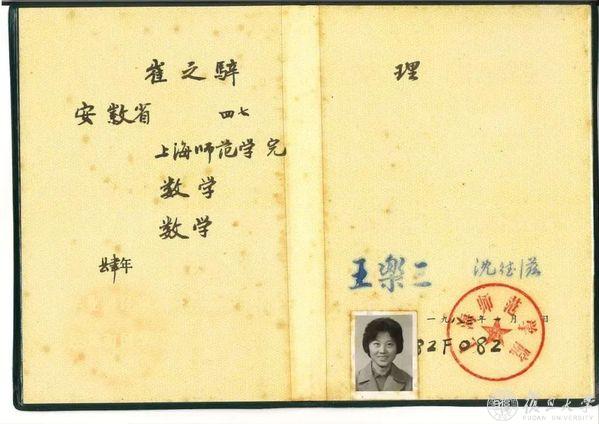 崔之
安徽省 四七
上海师范学完
数学
数学
肆年
理
王樂三 沈德滋
上海师范学院
一九八 年 月 日
82F082
復旦大学
FUDAN UNIVERSITY